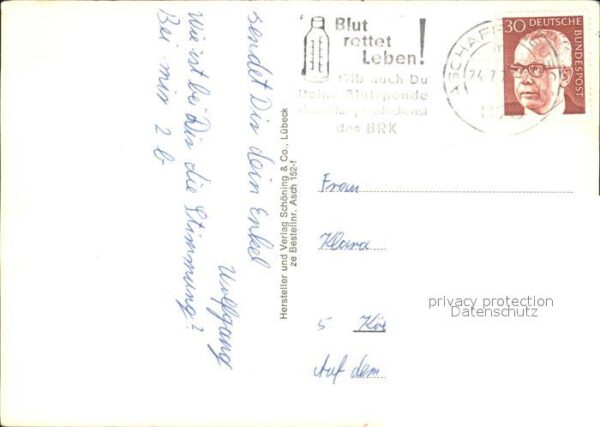 sendet Dir dein Enkel
Wolfgang
Wie ist bei Dir die Stimmung?
Bei mir 2 b
Hersteller und Verlag Schöning & Co., Lübeck
ze Bestellnr. Asch 152-f
Blut
rettet
Leben!
Gib auch Du
Deine Blutspende
dem Blutspendedienst
des BRK
ASCHAFF
30 DEUTSCHE
BUNDESPOST
Frau
Klara
5 Kö
Auf dem
privacy protection
Datenschutz